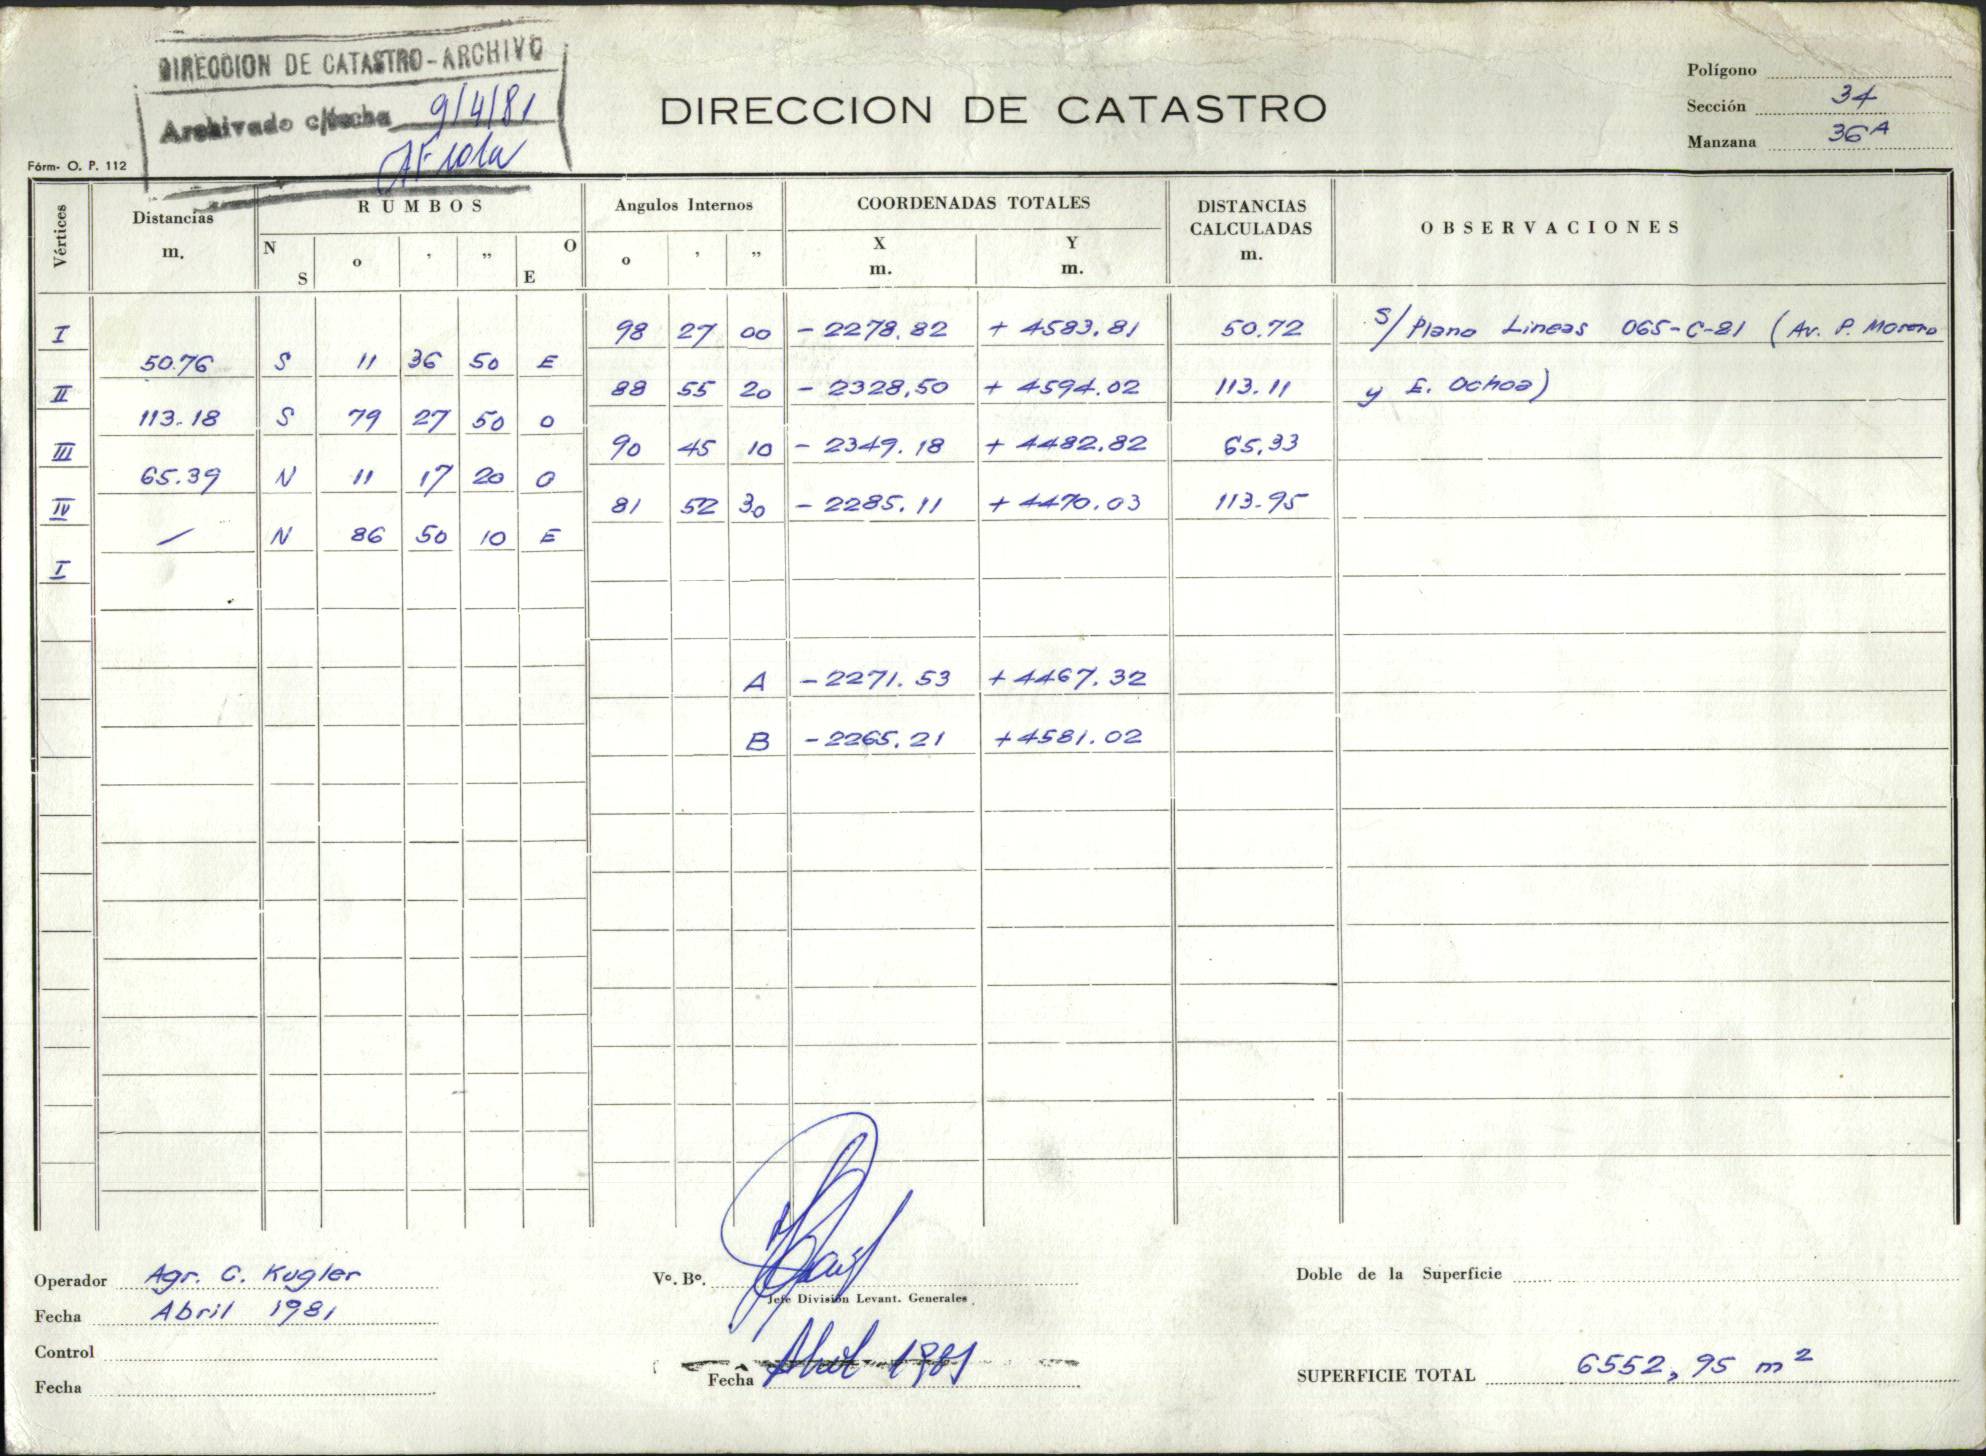 DIRECCION DE CATASTRO - ARCHIVO
Archivado c/fecha 9/4/81
DIRECCION DE CATASTRO
Polígono
Sección 34
Manzana 36A
Fórm- O. P. 112
Vértices Distancias m. RUMBOS N S o ' " O E Angulos Internos o ' " COORDENADAS TOTALES X m. Y m. DISTANCIAS CALCULADAS m. OBSERVACIONES
I 98 27 00 - 2278.82 + 4583.81 50.72 S/ Plano Lineas 065-C-81 (Av. P. Moreno
50.76 S 11 36 50 E
II 88 55 20 - 2328,50 + 4594.02 113.11 y E. Ochoa)
113.18 S 79 27 50 O
III 90 45 10 - 2349.18 + 4482.82 65,33
65.39 N 11 17 20 O
IV 81 52 30 - 2285.11 + 4470.03 113.95
— N 86 50 10 E
I
A - 2271.53 + 4467.32
B - 2265.21 + 4581.02
Operador Agr. C. Kugler
Fecha Abril 1981
Control
Fecha
Vº. Bº.
Jefe División Levant. Generales
Fecha Abril 1981
Doble de la Superficie
SUPERFICIE TOTAL 6552,95 m2